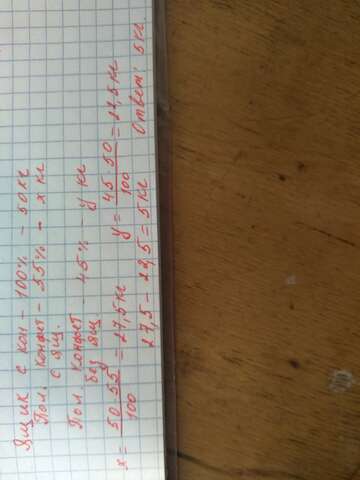 Ящик с кон - 100% - 50 кг
Пол. конфет - 55% - x кг
с ящ.
Пол. конфет - 45% - y кг
без ящ
x = 50·55/100 = 27,5 кг y = 45·50/100 = 22,5 кг
27,5 - 22,5 = 5 кг Ответ: 5 кг